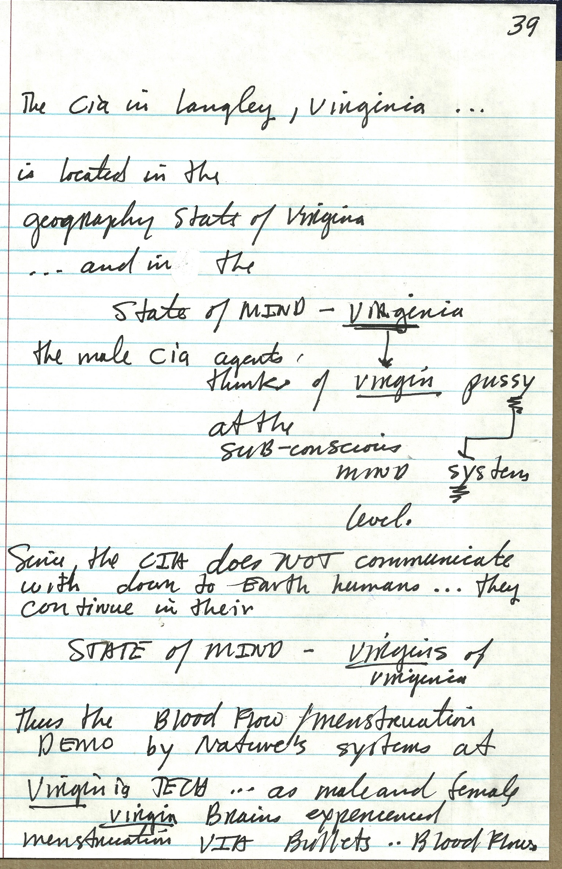 39
The Cia in Langley, Virginia ...
is located in the
geography State of Virigina
... and in the
State of MIND - VIRginia
the male Cia agents,
thinks of virgin pussy
at the
SUB-conscious
MIND system
level.
Since the CIA does NOT communicate
with down to Earth humans ... they
continue in their
STATE of MIND - Virigins of
virigenia
thus the Blood Flow /menstruation
DEMO by Nature's systems at
Virginia TECH ... as male and female
virgin Brains experienced
menstruation VIA Bullets .. Blood Flows